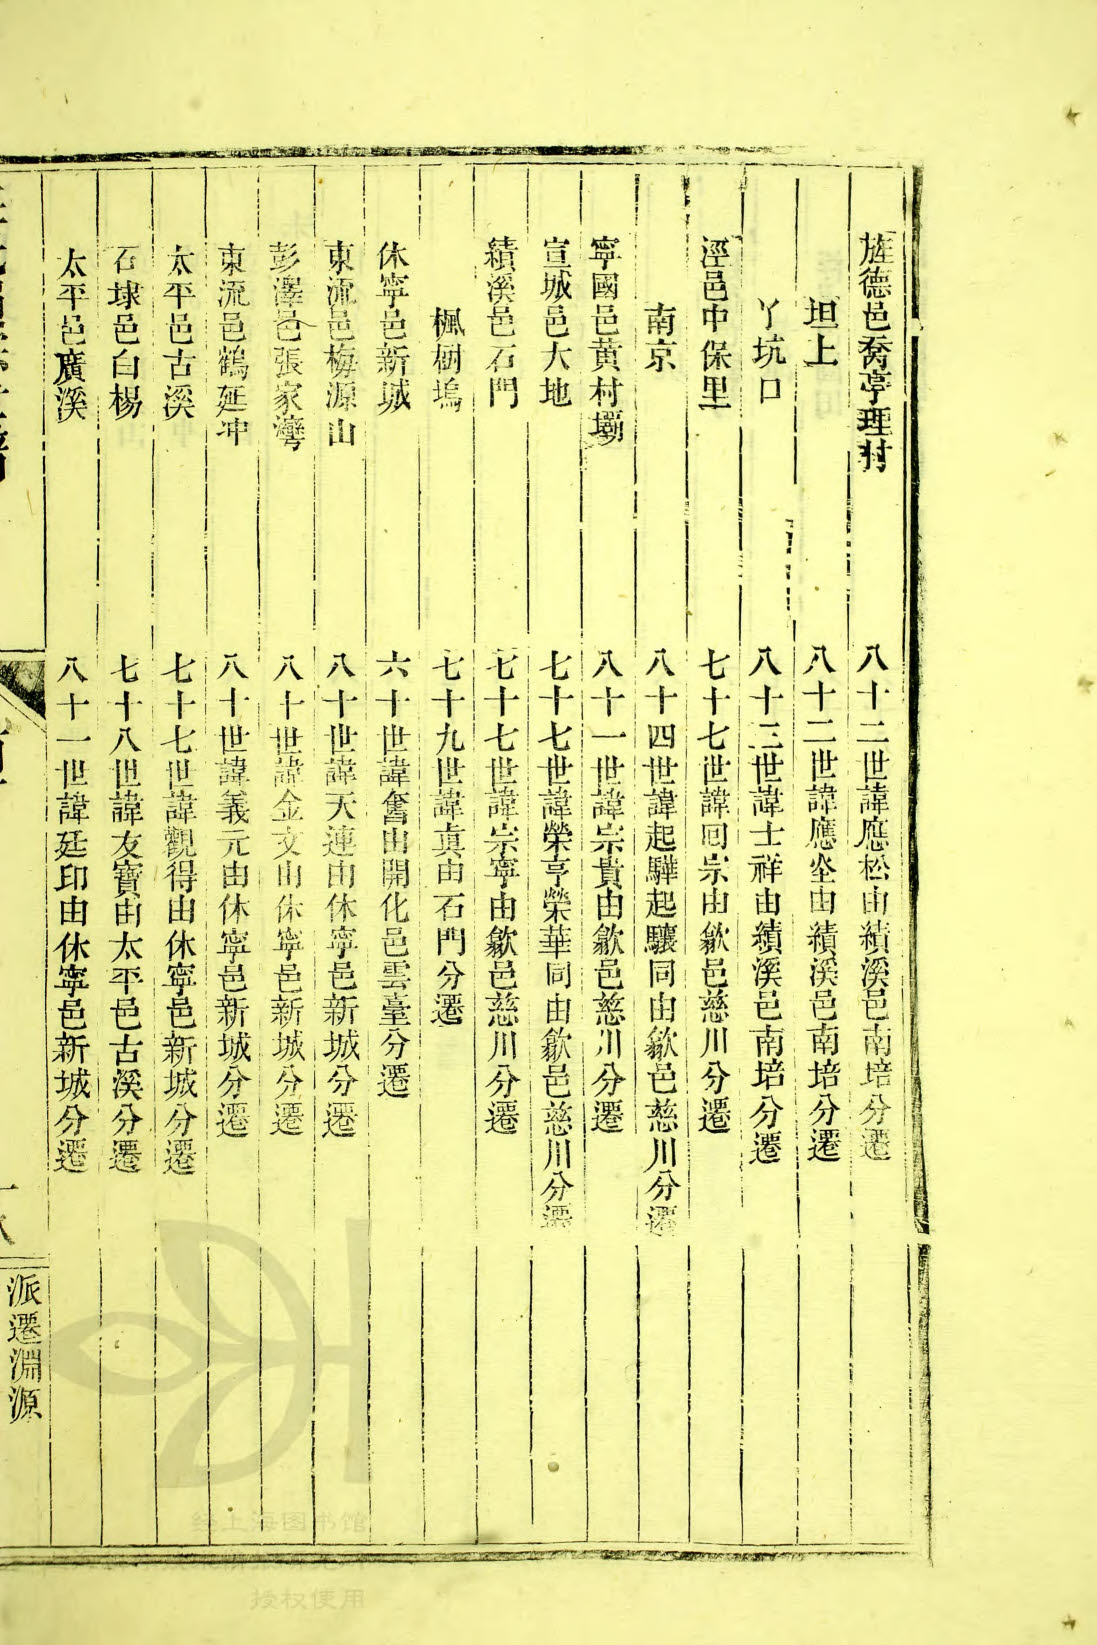 旌德邑喬亭理村 八十二世諱應松由績溪邑南培分遷
坦上 八十二世諱應坐由績溪邑南培分遷
丫坑口 八十三世諱士祥由績溪邑南培分遷
涇邑中保里 七十七世諱囘宗由歙邑慈川分遷
南京 八十四世諱起驊起驤同由歙邑慈川分遷
寧國邑黄村壩 八十一世諱宗貴由歙邑慈川分遷
宣城邑大地 七十七世諱榮亨榮華同由歙邑慈川分遷
績溪邑石門 七十七世諱宗寧由歙邑慈川分遷
楓樹塢 七十九世諱真由石門分遷
休寧邑新城 六十世諱奮由開化邑雲臺分遷
東流邑梅源山 八十世諱天連由休寧邑新城分遷
彭澤邑張家灣 八十世諱金文由休寧邑新城分遷
東流邑鶴延冲 八十世諱義元由休寧邑新城分遷
太平邑古溪 七十七世諱觀得由休寧邑新城分遷
石埭邑白楊 七十八世諱友寶由太平邑古溪分遷
太平邑廣溪 八十一世諱廷印由休寧邑新城分遷
派遷淵源
上海图书馆
授权使用